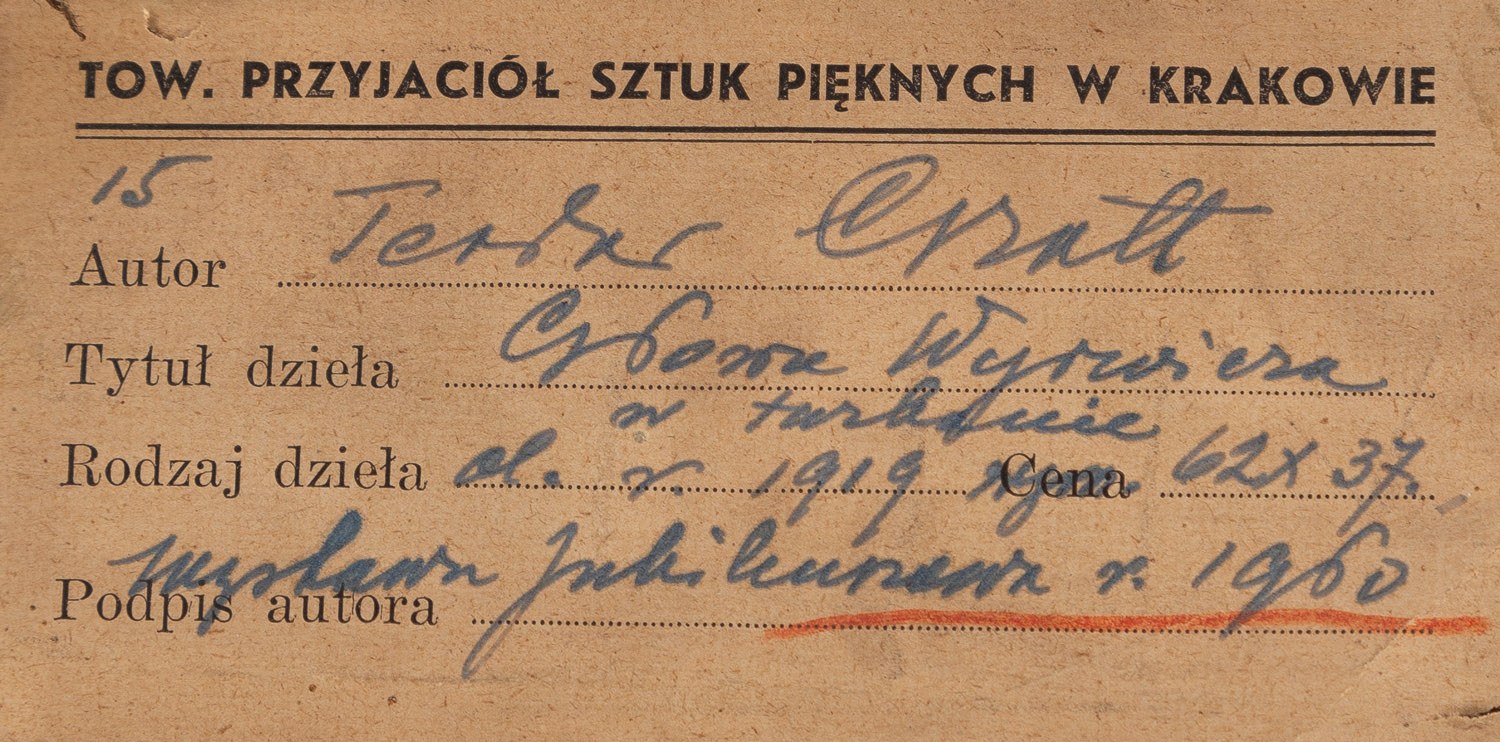 TOW. PRZYJACIÓŁ SZTUK PIĘKNYCH W KRAKOWIE
15
Autor Teodor Grott
Tytuł dzieła Głowa Wyrwicza
w turbanie
Rodzaj dzieła ol. r. 1919 Cena 62 x 37.
Podpis autora wystawa Jubileuszowa r. 1960